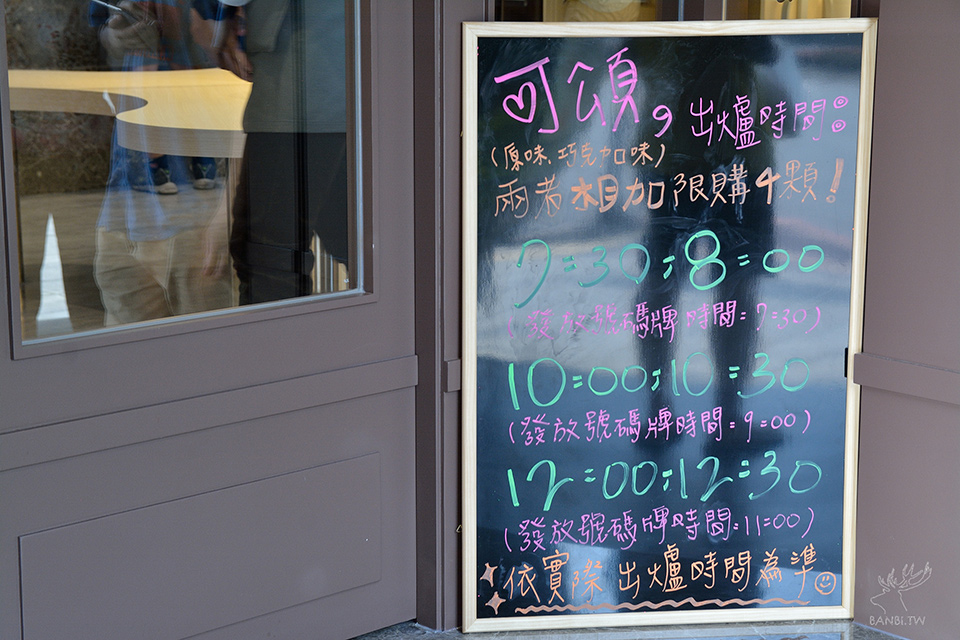 可頌,出爐時間:
(原味、巧克加味)
兩者相加限購4顆!
7:30;8:00
(發放號碼牌時間:7:30)
10:00;10:30
(發放號碼牌時間:9:00)
12:00;12:30
(發放號碼牌時間:11:00)
依實際出爐時間為準
BANBI.TW